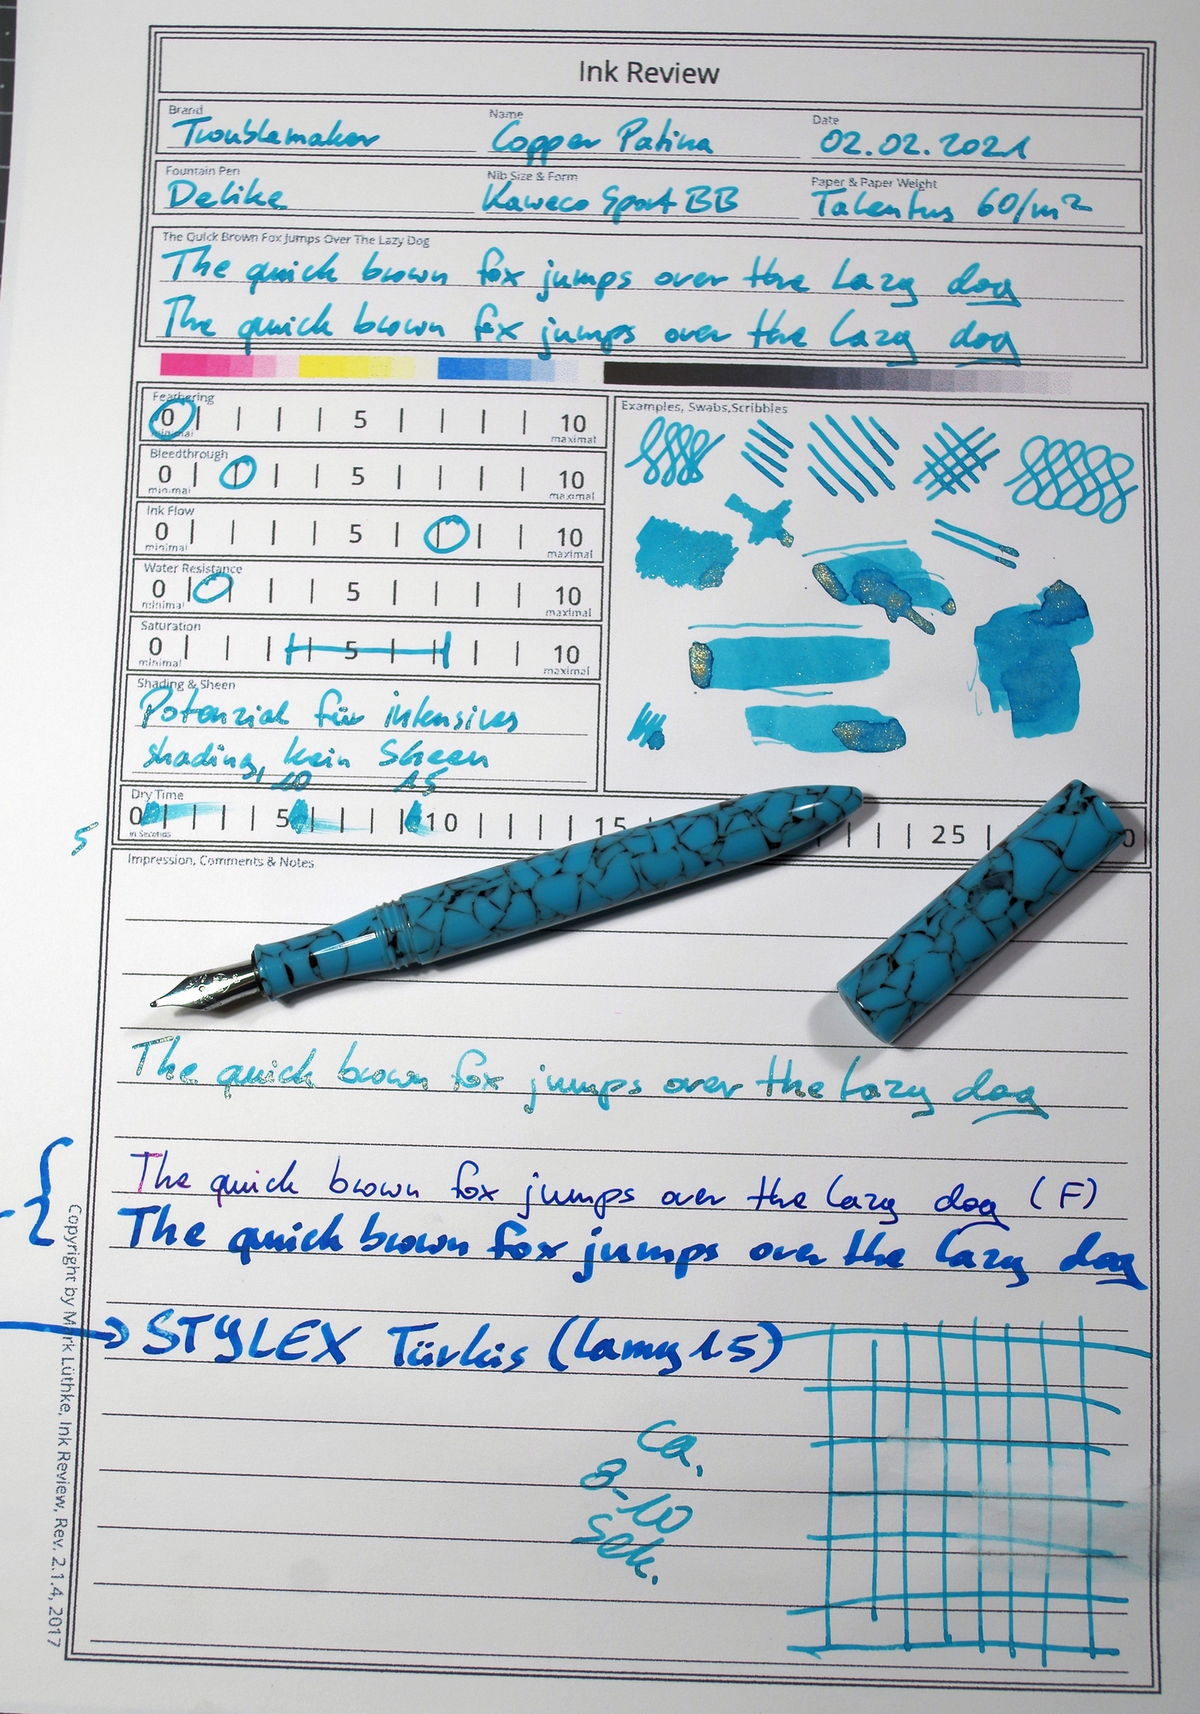 Ink Review
Brand Name Date
Troublemaker Copper Patina 02.02.2021
Fountain Pen Nib Size & Form Paper & Paper Weight
Delike Kaweco Sport BB Talentus 60/m²
The Quick Brown Fox Jumps Over The Lazy Dog
The quick brown fox jumps over the lazy dog
The quick brown fox jumps over the lazy dog
Feathering
0 5 10
minimal maximal
Bleedthrough
0 5 10
minimal maximal
Ink Flow
0 5 10
minimal maximal
Water Resistance
0 5 10
minimal maximal
Saturation
0 5 10
minimal maximal
Shading & Sheen
Potenzial für intensives
shading, kein Sheen
Examples, Swabs,Scribbles
10 15
Dry Time
0 5 10 15 25 0
in Seconds
5
Impression, Comments & Notes
The quick brown fox jumps over the lazy dog
The quick brown fox jumps over the lazy dog (F)
The quick brown fox jumps over the lazy dog
STYLEX Türkis (Lamy 1.5)
Ca.
8-10
Sek.
Copyright by Mark Lüthke, Ink Review, Rev. 2.1.4, 2017